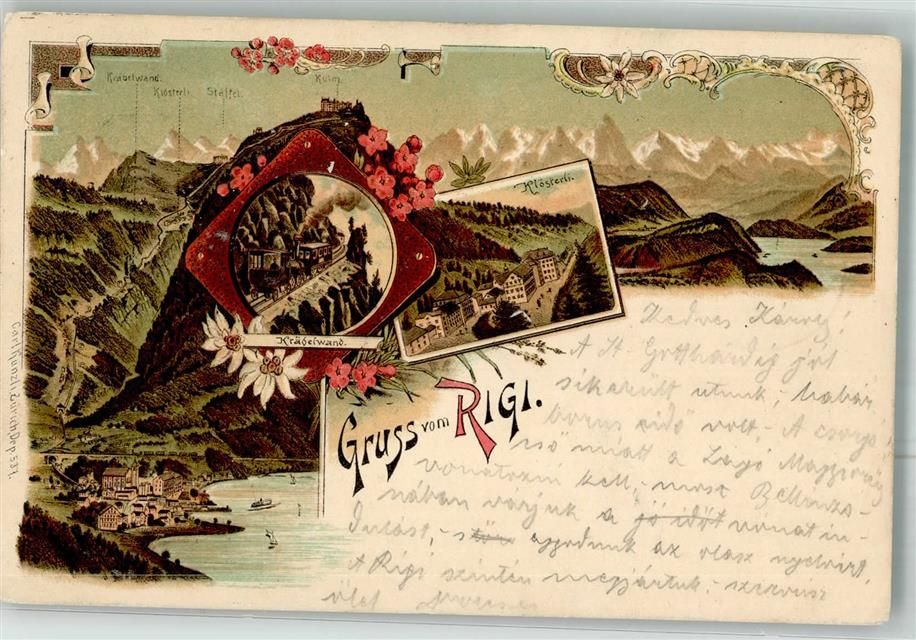 Krägelwand.
Klösterli.
Staffel.
Kulm.
Klösterli.
Krägelwand.
Gruss vom RIGI.
Carl Künzli, Zürich Dep. 537.
Kedves Károly!
A St. Gotthardig jól
sikerült utunk, habár
borus idő volt. A csorgó
eső miatt a Lago Maggioréig
vonatozni kell, most Bellinzo-
nában várjuk a jó időt vonat in-
dulást,
az olasz nyelvért.
A Rigi szintén megjártuk. szervusz
ölel